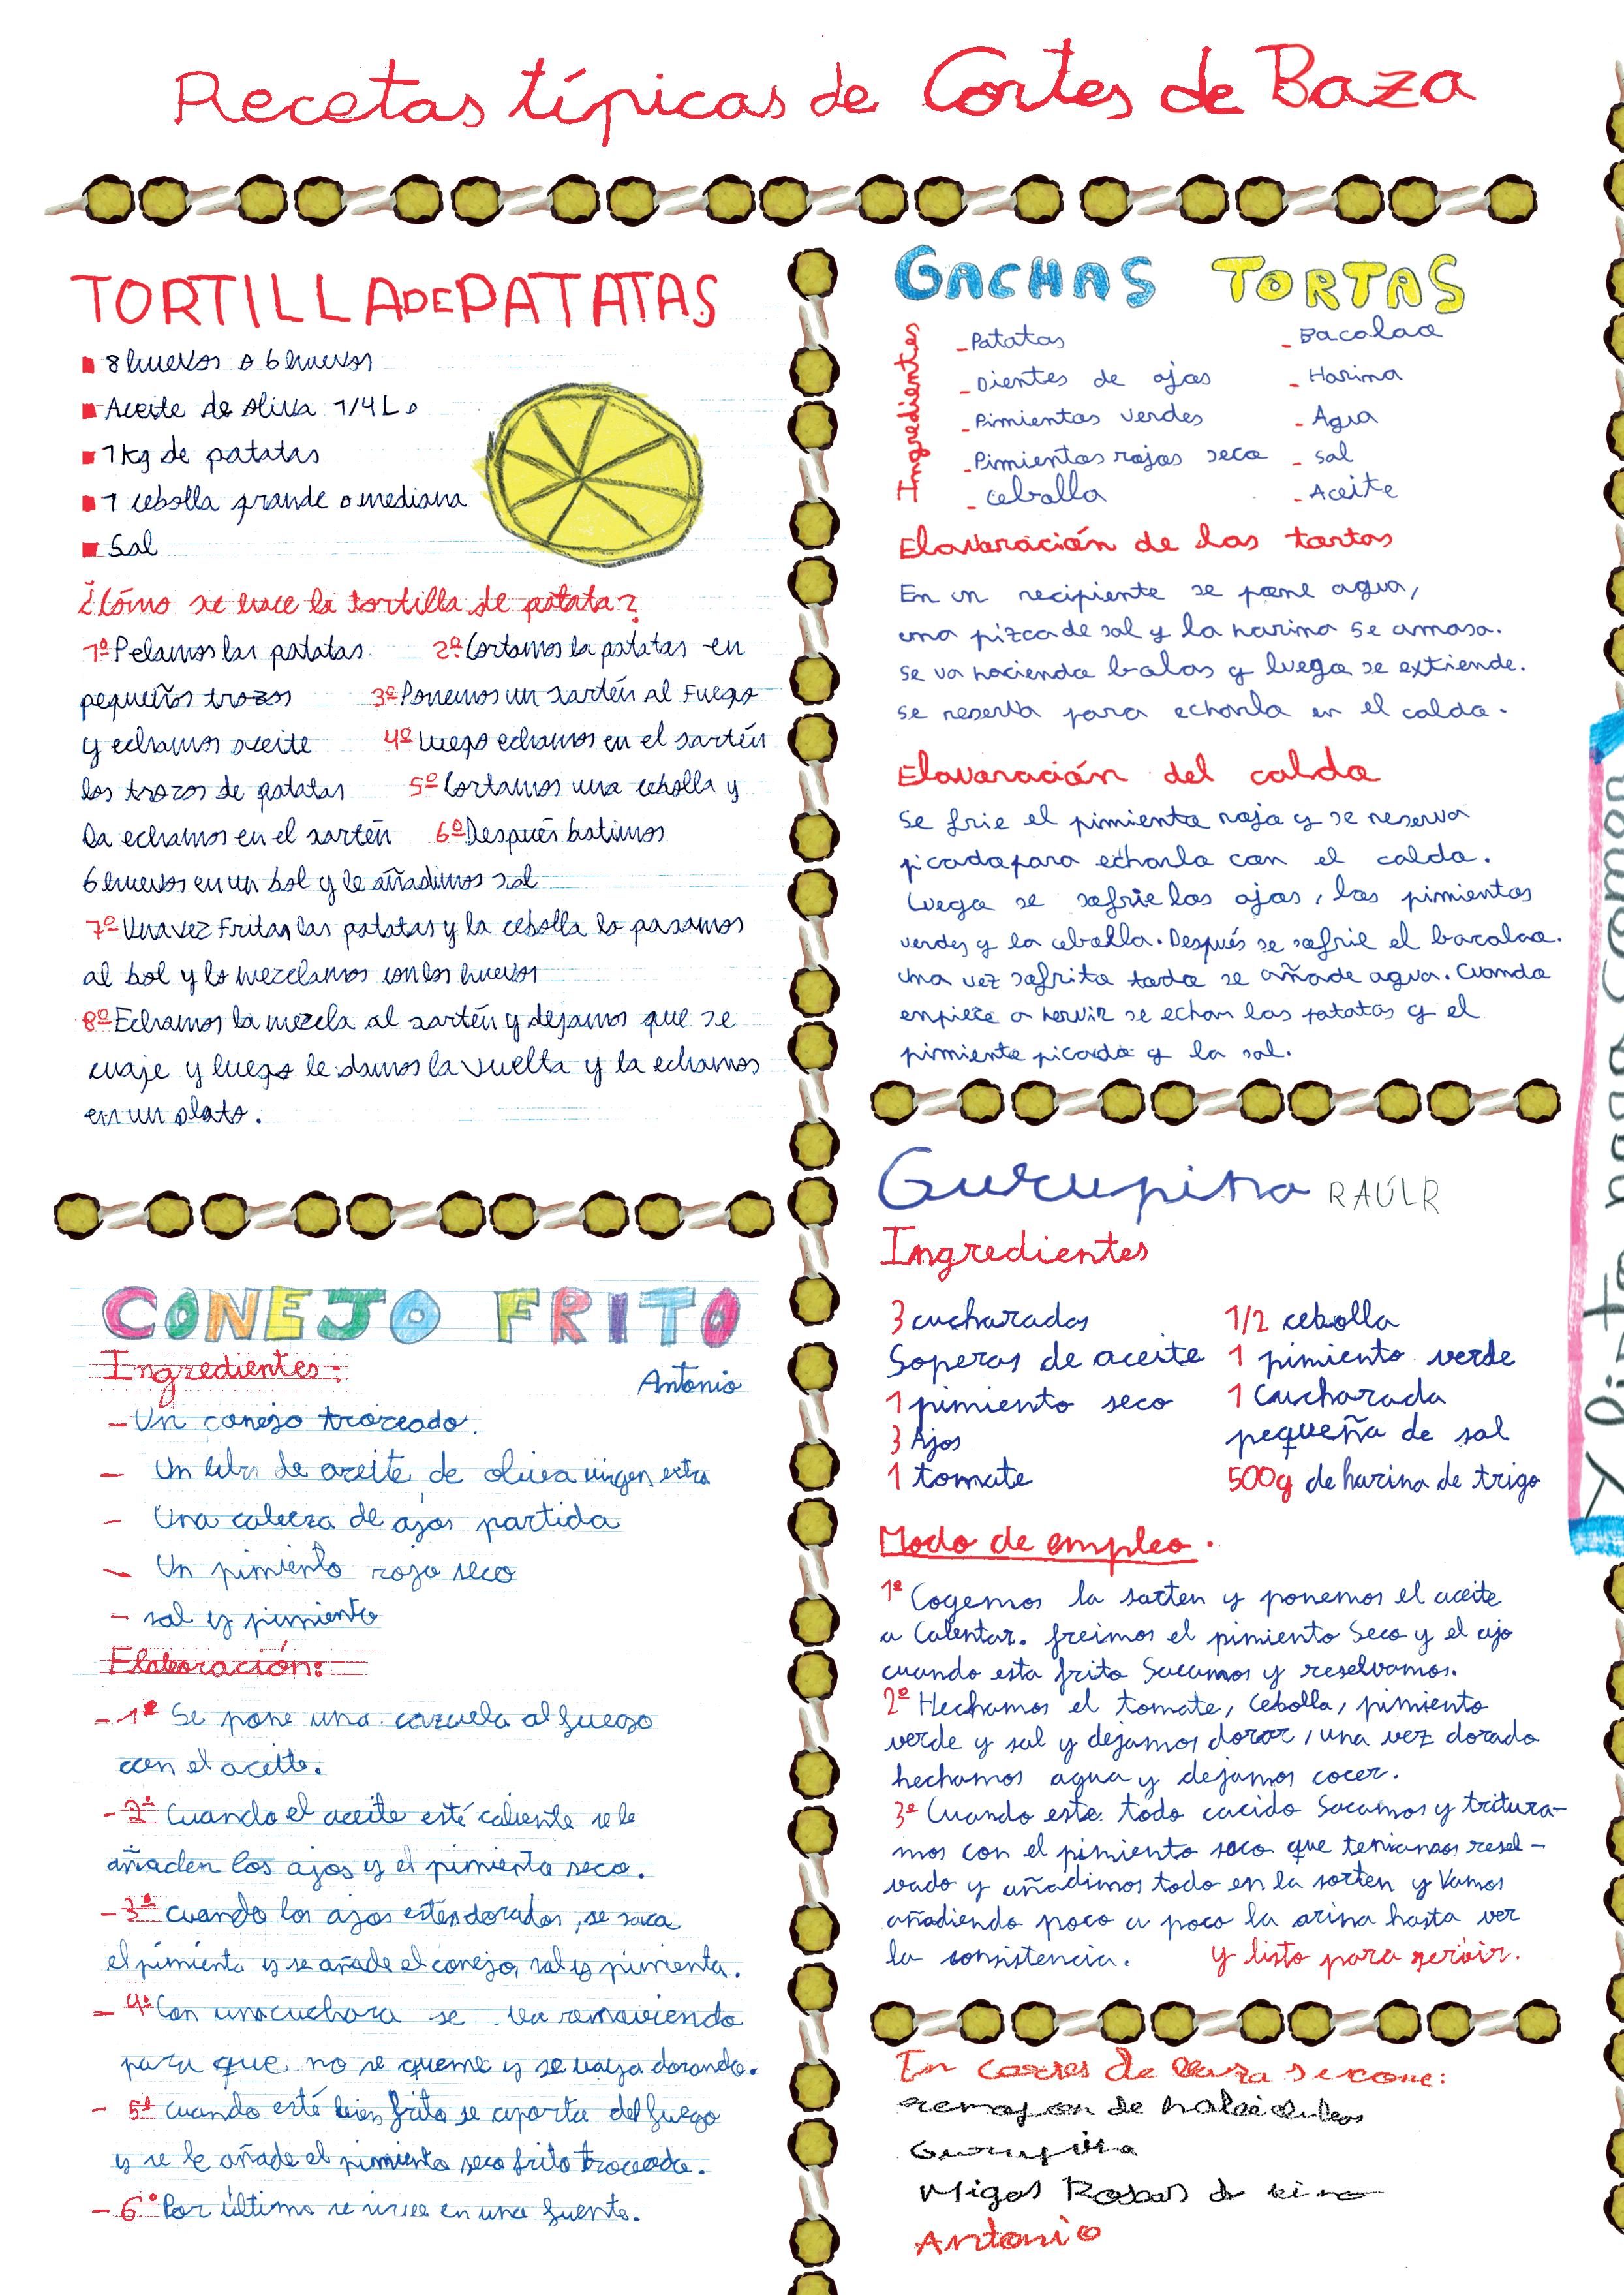 Recetas típicas de Cortes de Baza
TORTILLA DE PATATAS
8 huevos o 6 huevos
Aceite de Oliva 1/4 L.
1 kg de patatas
1 cebolla grande o mediana
Sal
¿Cómo se hace la tortilla de patata?
1º Pelamos las patatas. 2º Cortamos la patatas en
pequeños trozos 3º Ponemos un sartén al Fuego
y echamos aceite 4º Luego echamos en el sartén
los trozos de patatas 5º Cortamos una cebolla y
la echamos en el sartén 6º Después batimos
6 huevos en un bol y le añadimos sal
7º Una vez Fritas las patatas y la cebolla lo pasamos
al bol y lo mezclamos con los huevos
8º Echamos la mezcla al sartén y dejamos que se
cuaje y luego le damos la vuelta y la echamos
en un plato.
CONEJO FRITO
Ingredientes:
Antonio
- Un conejo troceado.
- Un litro de aceite de oliva virgen extra
- Una cabeza de ajos partida
- Un pimiento rojo seco
- sal y pimienta
Elaboración:
- 1º Se pone una cazuela al fuego
con el aceite.
- 2º Cuando el aceite esté caliente se le
añaden los ajos y el pimiento seco.
- 3º cuando los ajos estén dorados, se saca
el pimiento y se añade el conejo, sal y pimienta.
- 4º Con una cuchara se va removiendo
para que no se queme y se vaya dorando.
- 5º cuando esté bien frito se aparta del fuego
y se le añade el pimiento seco frito troceado.
- 6º Por último se sirve en una fuente.
GACHAS TORTAS
Ingredientes
- Patatas
- Dientes de ajos
- Pimientos verdes
- Pimientos rojos seco
- cebolla
- Bacalao
- Harina
- Agua
- sal
- Aceite
Elavaración de las tortas
En un recipiente se pone agua,
una pizca de sal y la harina se amasa.
se va haciendo bolas y luego se extiende.
se reserva para echarla en el caldo.
Elavaración del caldo
Se frie el pimiento rojo y se reserva
picado para echarlo con el caldo.
Luego se sofrie los ajos, los pimientos
verdes y la cebolla. Después se sofrie el bacalao.
una vez sofrito todo se añade agua. Cuando
empiece a hervir se echan las patatas y el
pimiento picado y la sal.
Gurupina RAÚL R
Ingredientes
3 cucharadas
Soperas de aceite
1 pimiento seco
3 Ajos
1 tomate
1/2 cebolla
1 pimiento verde
1 Cucharada
pequeña de sal
500g de harina de trigo
Modo de empleo.
1º Cogemos la sarten y ponemos el aceite
a Calentar. freimos el pimiento Seco y el ajo
cuando esta frito Sacamos y reselvamos.
2º Hechamos el tomate, cebolla, pimiento
verde y sal y dejamos dorar, una vez dorado
hechamos agua y dejamos cocer.
3º Cuando este todo cocido Sacamos y tritura-
mos con el pimiento seco que teniamos resel-
vado y añadimos todo en la sarten y Vamos
añadiendo poco a poco la arina hasta ver
la consistencia. y listo para servir.
se come:
de
Gurupina
Migas
Antonio
Y listo para comer